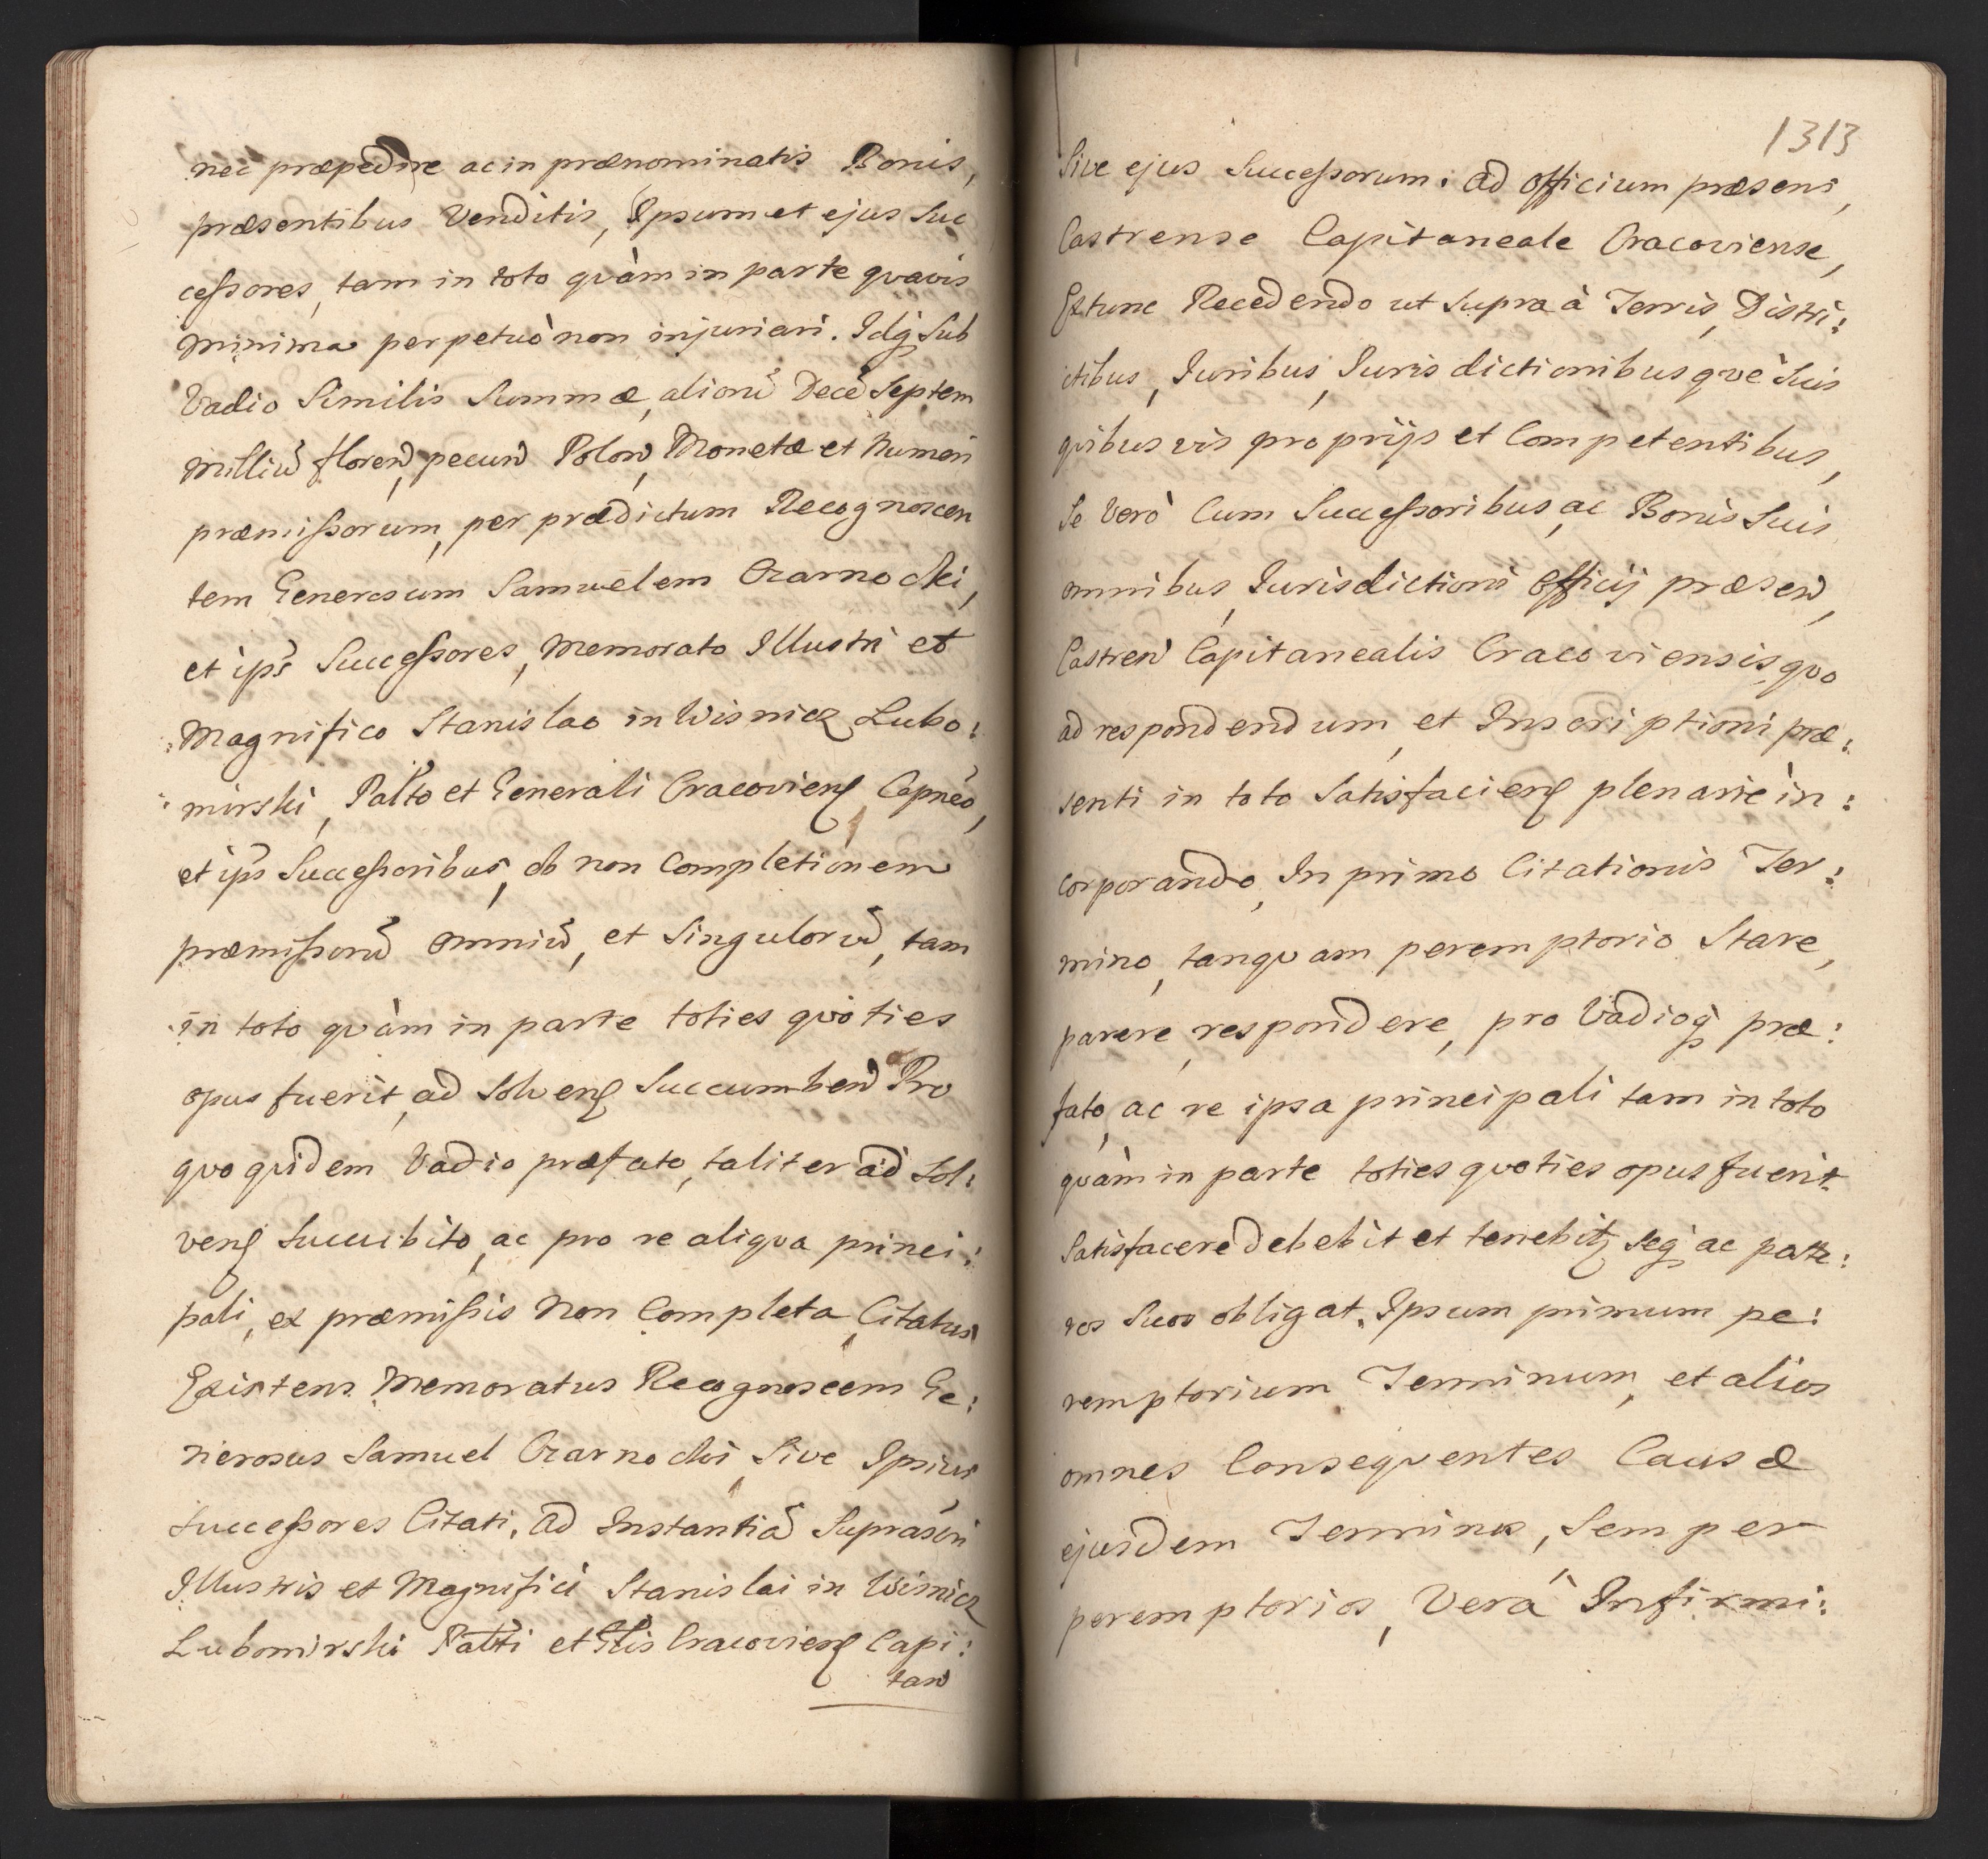 nec præpedire ac in prænominatis Bonis,
præsentibus Venditis, Ipsum et ejus Suc
cessores, tam in toto quàm in parte quavis
minima perpetuò non injuriari. Idq́ Sub
Vadio Similis Summæ, alioru᷃ Dece᷃ Septem
milliu᷃ floren᷃, pecun᷃ Polon᷃, Monetæ et Numeri
præmissorum, per prædictum Recognoscen
tem Generosum Samuelem Czarnocki,
et ips᷃ Successores, Memorato Illustri et
Magnifico Stanislao in Wisnicz Lubo:
mirski, Palto et Generali Cracovienſ, Capneo,
et ips᷃ Successoribus, ob non Completionem
præmissoru᷃ omniu᷃, et Singuloru᷃, tam
in toto quàm in parte toties quoties
opus fuerit, ad Solvenſ Succumben᷃ Pro
quo quidem Vadio præfato, taliter ad Sol:
venſ Succubito, ac pro re aliqua princi:
pali, ex præmissis Non Completa, Citatus
Existens Memoratus Recognoscens Ge:
nerosus Samuel Czarnocki, Sive Ipsius
Successores Citati, ad Instantia᷃ Suprascri
Illustris et Magnifici Stanislai in Wisnicz
Lubomirski Palti et Glis Cracovienſ Capi:
tan᷃
1313
Sive ejus Successorum: ad officium præsens,
Castrense Capitaneale Cracoviense,
Extunc Recedendo ut Supra à Terris, Distri:
ctibus, Juribus, Jurisdictionibusquè Suis
quibusvis proprijs et Competentibus,
Se Verò Cum Successoribus, ac Bonis Suis
omnibus, Jurisdictioni Officij præsen᷃,
Castren᷃ Capitanealis Cracoviensis, quo
ad respondendum, et Inscriptioni præ:
senti in toto Satisfacienſ plenariè in:
corporando, In primo Citationis Ter:
mino, tanquam peremptorio Stare,
parere, respondere, pro Vadioq́ præ:
fato, ac re ipsa principali tam in toto
quàm in parte toties quoties opus fuerit
Satisfacere debebit et tenebitz, seq́ ac poste:
ros Suos obligat. Ipsum primum pe:
remptorium Terminum, et alios
omnes Consequentes Causæ
ejusdem Terminos, Semper
peremptorios, Verâ Infirmi: